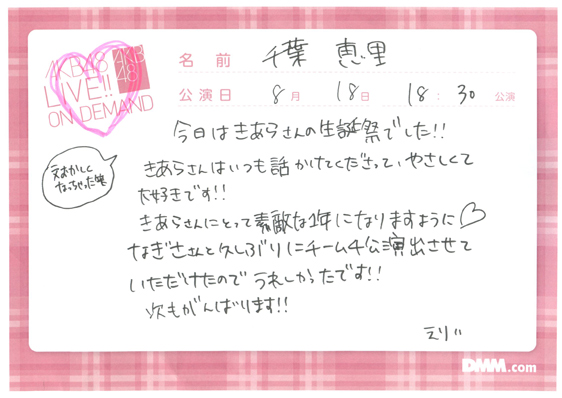 AKB48
LIVE!!
ON DEMAND
AKB
48
名前 千葉 恵里
公演日 8月 18日 18:30 公演
今日はきあらさんの生誕祭でした!!
きあらさんはいつも話かけてくださって、やさしくて
大好きです!!
きあらさんにとって素敵な1年になりますように♡
なぎさんと久しぶりにチーム4公演出させて
いただけたのでうれしかったです!!
次もがんばります!!
えりい
なっちゃった
DMM.com